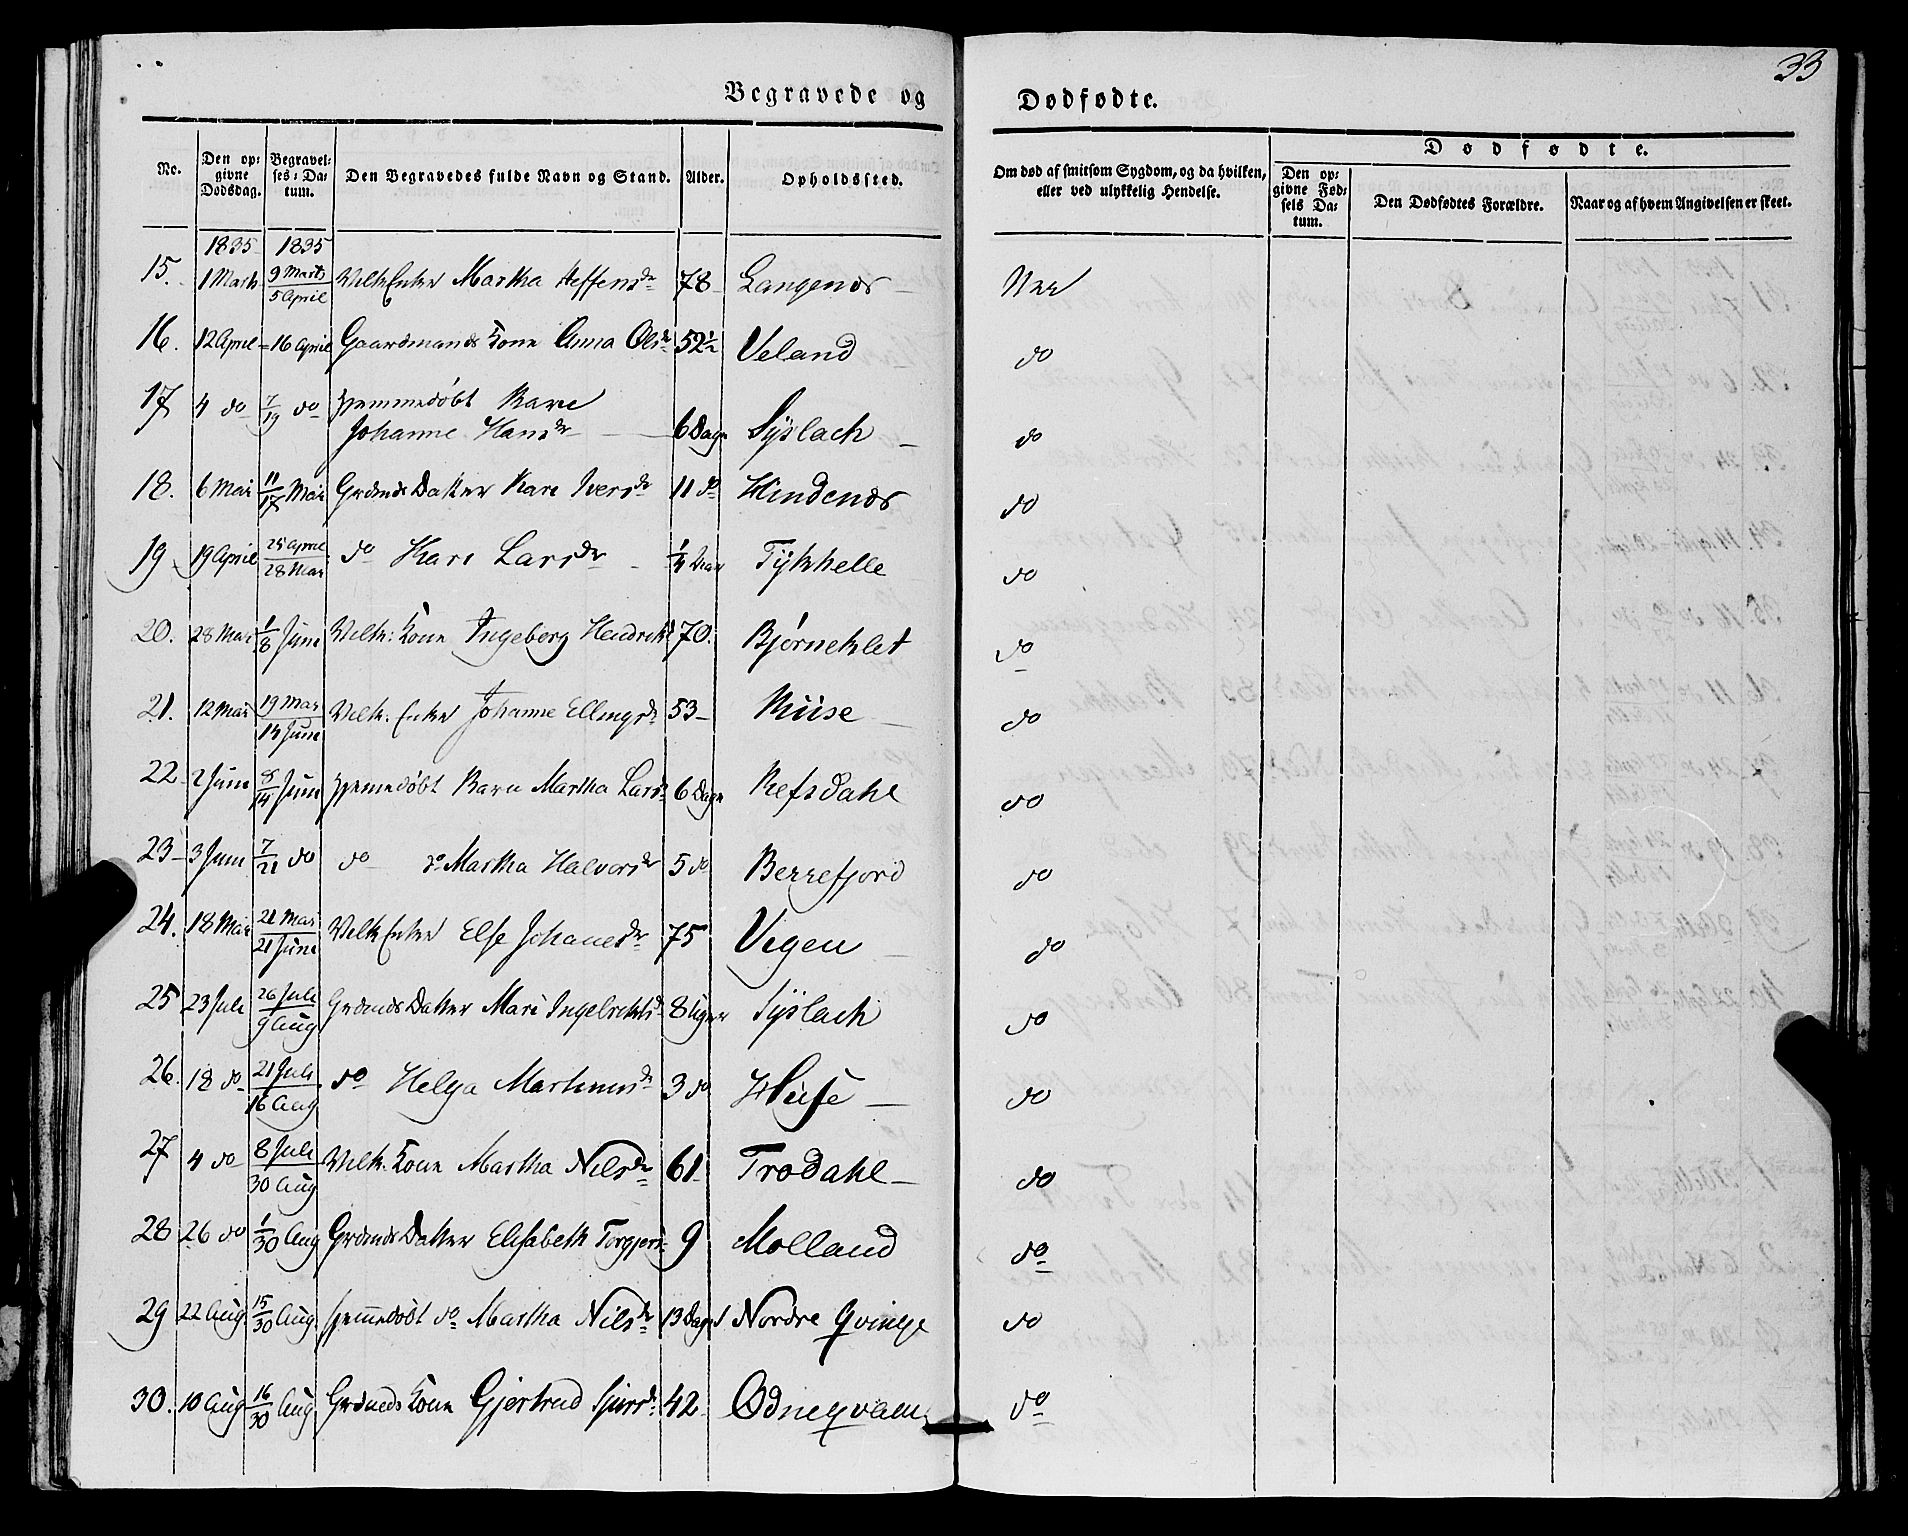 33
Begravede og Dødfødte.
No.
Den op-givne Dødsdag.
Begravel-ses-Da-tum.
Den Begravedes fulde Navn og Stand.
Alder.
Opholdssted.
Om død af smitsom Sygdom, og da hvilken, eller ved ulykkelig Hendelse.
Dødfødte.
Den op-givne Fød-sels Da-tum.
Den Dødfødtes Forældre.
Naar og af hvem Angivelsen er skeet.
1835 1835
15. 1 Marts 9 Marts 5 April Vilk Enke Martha Steffensdr 78 Langenæs Nei
16. 12 April 16 April Gaardmands Kone Anna Olsdr 52½ Veland do
17 4 do 7/19 do Hjemmedøbt Barn
Johanne Hansdr 6 Dage Syslach do
18. 6 Mai 11/17 Mai Grdmds Datter Kari Iversdr 11 do Hindenæs do
19 19 April 25 April 28 Mai do Kari Larsdr ¼ Tykhelle do
20. 28 Mai 1/8 Juni Vilk: Kone Ingeborg Hendriksd 70. Bjørneklet do
21. 12 Mai 19 Mai 14 Juni Vilk: Enke Johanne Ellingsdr 53 Riise do
22 2 Juni 8/14 Juni Hjemedøbt Barn Martha Larsdr 6 Dage Refsdahl do
23 3 Juni 7/21 do do do Martha Halvorsdr 5 do Berrefjord do
24. 18 Mai 21 Mai 21 Juni Vilk Enke Else Johanesdr 75 Vigen do
25 23 Juli 26 Juli 9 Aug Grdmds Datter Mari Ingelrektsd 8 Uger Syslach do
26. 18 do 21 Juli 16 Aug do Helga Martinusdr 3 do Huse do
27 4 do 8 Juli 30 Aug Vilk. Kone Martha Nilsdr 61 Trodahl do
28 26 do 1/30 Aug Grdmds Datter Elisabeth Torgjersd 9 Molland do
29 22 Aug 15/30 Aug. Hjemedøbt do Martha Nilsdr 13 Dage Nordre Qvinge do
30. 10 Aug 16/30 Aug Grdmds Kone Gjertrud Sjursdr 42 Ødneqvam do